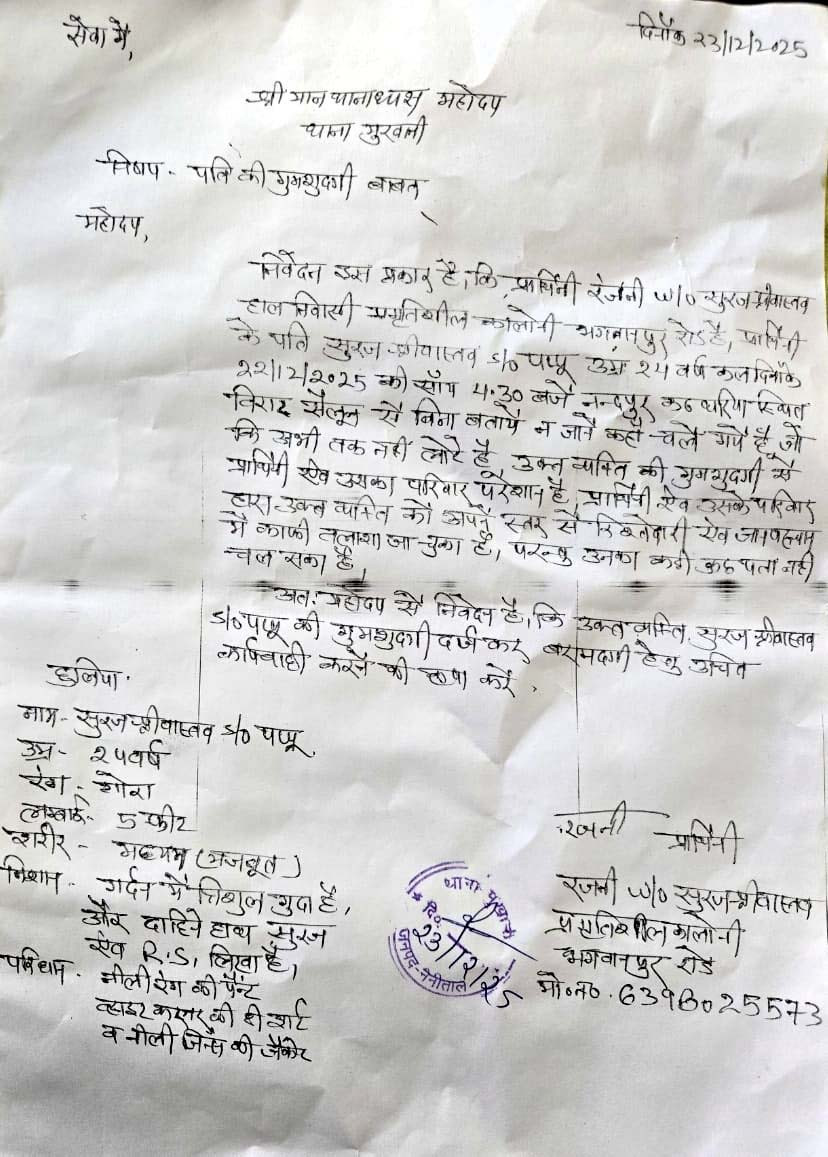 सेवा में,
दिनाँक 23/12/2025
श्रीमान थानाध्यक्ष महोदय
थाना मुखानी
विषय - पति की गुमशुदगी बाबत
महोदय,
निवेदन इस प्रकार है, कि प्रार्थिनी रजनी w/o सुरज श्रीवास्तव
हाल निवासी प्रगतिशील कालोनी भगवानपुर रोड है, प्रार्थिनी
के पति सुरज श्रीवास्तव s/o पप्पू उम्र 24 वर्ष कल दिनाँक
22/12/2025 की साँय 4:30 बजे नन्दपुर कठघरिया स्थित
विराट सैलून से बिना बताये न जाने कहाँ चले गये है, जो
कि अभी तक नहीं लौटे है, उक्त व्यक्ति की गुमशुदगी से
प्रार्थिनी एंव उसका परिवार परेशान है, प्रार्थिनी एंव उसके परिवार
द्वारा उक्त व्यक्ति को अपने स्तर से रिश्तेदारी एंव जानपहचान
में काफी तलाशा जा चुका है, परन्तु उनका कही कुछ पता नही
चल सका है,
अतः महोदय से निवेदन है, कि उक्त व्यक्ति सुरज श्रीवास्तव
s/o पप्पू की गुमशुदगी दर्ज कर बरामदगी हेतु उचित
कार्यवाही करने की कृपा करें,
हुलिया -
नाम - सुरज श्रीवास्तव s/o पप्पू
उम्र - 24 वर्ष
रंग - गोरा
लम्बाई - 5 फीट
शरीर - मध्यम (मजबूत)
निशान - गर्दन में त्रिशुल गुदा है,
और दाहिने हाथ सुरज
एंव R.S. लिखा है,
परिधान - नीली रंग की पैंट
व्हाइट कलर की टी शर्ट
व नीली जिंस की जैकेट
रजनी
प्रार्थिनी
रजनी w/o सुरज श्रीवास्तव
प्रगतिशील कालोनी
भगवानपुर रोड
मो०न०. 6396025573
थाना मुखानी
दि०
23/12/25
जनपद-नैनीताल